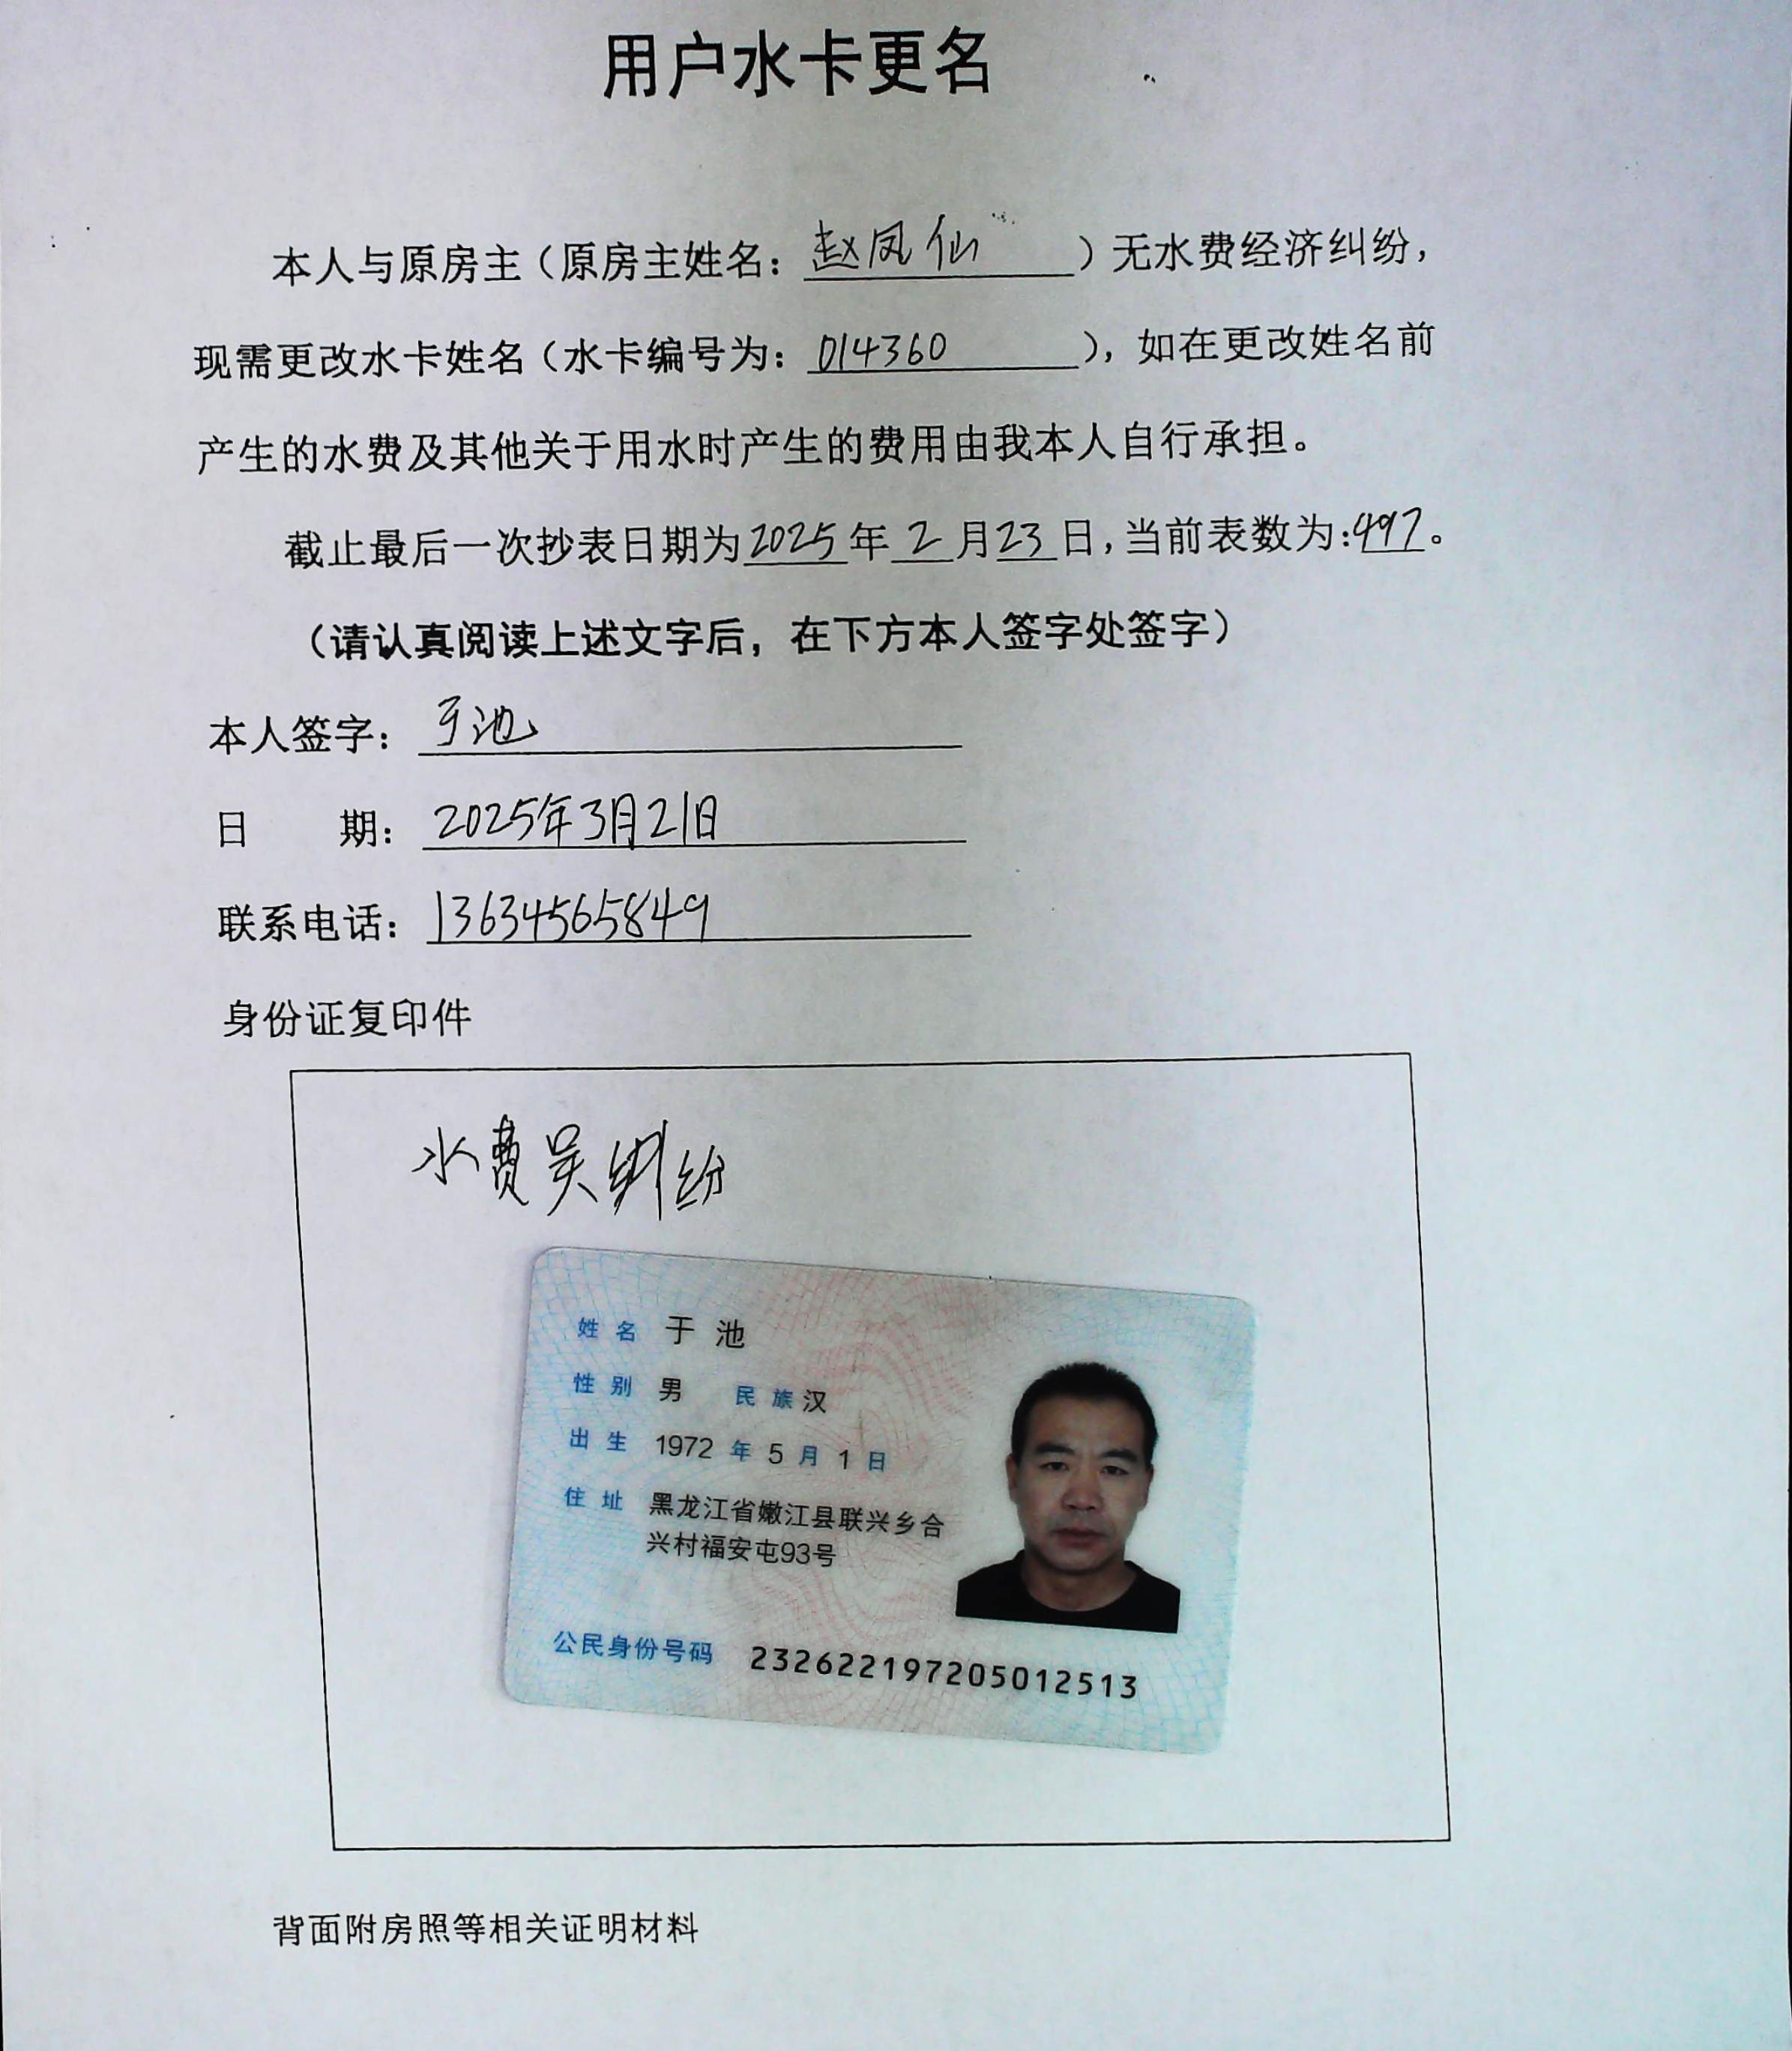 用户水卡更名
本人与原房主（原房主姓名：赵凤仙）无水费经济纠纷，
现需更改水卡姓名（水卡编号为：014360），如在更改姓名前
产生的水费及其他关于用水时产生的费用由我本人自行承担。
截止最后一次抄表日期为2025年2月23日，当前表数为：497。
（请认真阅读上述文字后，在下方本人签字处签字）
本人签字：于池
日 期：2025年3月21日
联系电话：13634565849
身份证复印件
水费吴纠纷
姓名 于池
性别 男 民族 汉
出生 1972 年 5 月 1 日
住址 黑龙江省嫩江县联兴乡合
兴村福安屯93号
公民身份号码 232622197205012513
背面附房照等相关证明材料